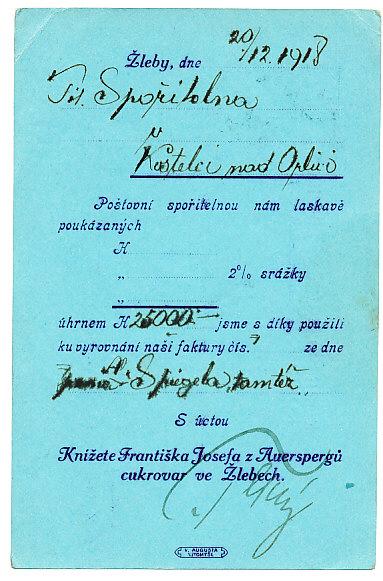 Žleby, dne 20/12.1918
Tit. Spořitelna
v
Kostelci nad Orlicí
Poštovní spořitelnou nám laskavě
poukázaných
H
„ 2% srážky
„
úhrnem H 25000.— jsme s díky použili
ku vyrovnání naší faktury čís. ze dne
Spiegela, tamtéž
S úctou
Knížete Františka Josefa z Auerspergů
cukrovar ve Žlebech.
V. AUGUSTA
LITOMYŠL